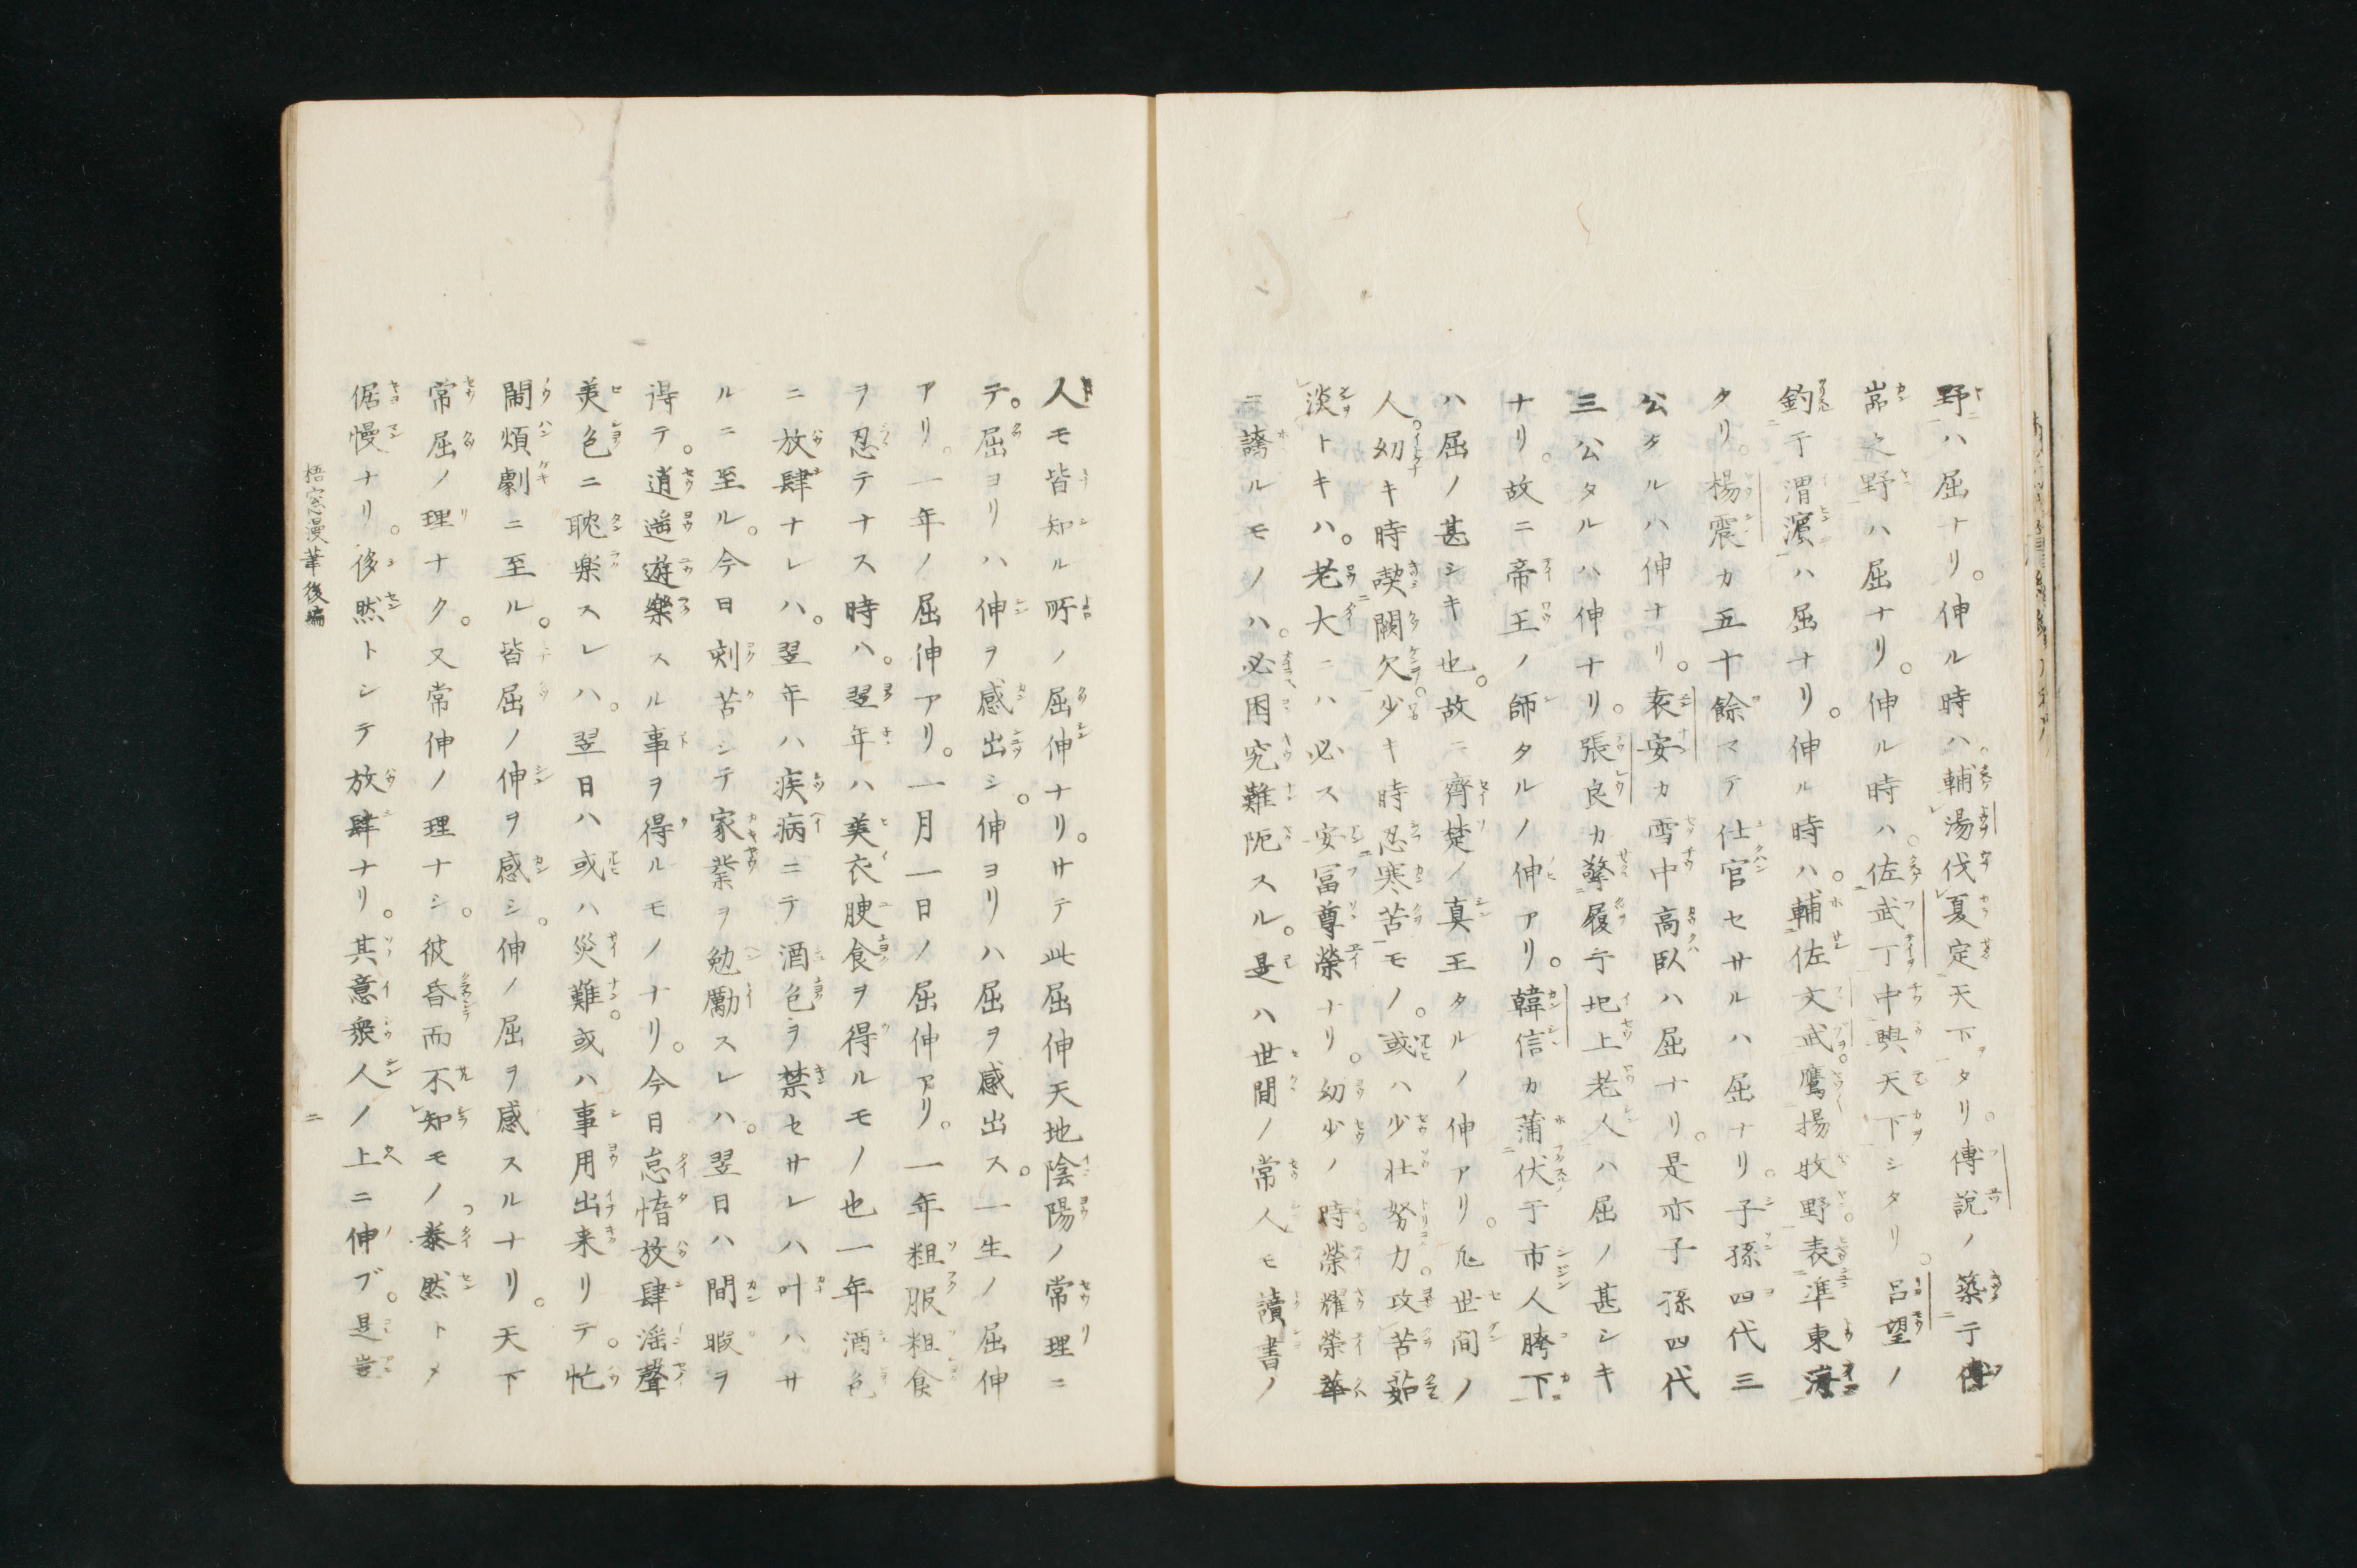 野ハ屈ナリ。伸ル時ハ。輔湯伐夏定天下タリ。傳説ノ築于傅
嵓之野ハ屈ナリ。伸ル時ハ。佐武丁中興天下シタリ。呂望ノ
釣于渭濱ハ屈ナリ。伸ル時ハ。輔佐文武。鷹揚牧野。表準東海
タリ。楊震カ五十餘マテ仕官セサルハ屈ナリ。子孫四代三
公タルハ伸ナリ。袁安カ雪中高臥ハ屈ナリ。是亦子孫四代
三公タルハ伸ナリ。張良カ擎履于圯上老人ハ屈ノ甚シキ
ナリ。故ニ帝王ノ師タルノ伸アリ。韓信カ蒲伏于市人胯下
ハ屈ノ甚シキ也。故ニ齊楚ノ真王タルノ伸アリ。凡世間ノ
人。幼キ時喫闕欠。少キ時忍寒苦モノ。或ハ少壮努力。攻苦茹
淡トキハ。老大ニハ必ス安冨尊榮ナリ。幼少ノ時。榮耀榮華
ニ誇ルモノハ。必困究難阨スル。是ハ世間ノ常人モ讀書ノ
人モ皆知ル所ノ屈伸ナリ。サテ此屈伸天地陰陽ノ常理ニ
テ。屈ヨリハ伸ヲ感出シ。伸ヨリハ屈ヲ感出ス。一生ノ屈伸
アリ。一年ノ屈伸アリ。一月一日ノ屈伸アリ。一年粗服粗食
ヲ忍テナス時ハ。翌年ハ美衣腴食ヲ得ルモノ也一年酒色
ニ放肆ナレハ。翌年ハ疾病ニテ酒色ヲ禁セサレハ叶ハサ
ルニ至ル。今日刻苦シテ家業ヲ勉勵スレハ。翌日ハ間暇ヲ
得テ。逍遥遊樂スル事ヲ得ルモノナリ。今日怠惰放肆滛聲
美色ニ耽楽スレハ。翌日ハ或ハ災難。或ハ事用出来リテ。忙
閙煩劇ニ至ル。皆屈ノ伸ヲ感シ。伸ノ屈ヲ感スルナリ。天下
常屈ノ理ナク。又常伸ノ理ナシ。彼昏而不知モノ泰然トメ
倨慢ナリ。侈然トシテ放肆ナリ。其意衆人ノ上ニ伸ブ。是豈
梧窓漫筆後編
二